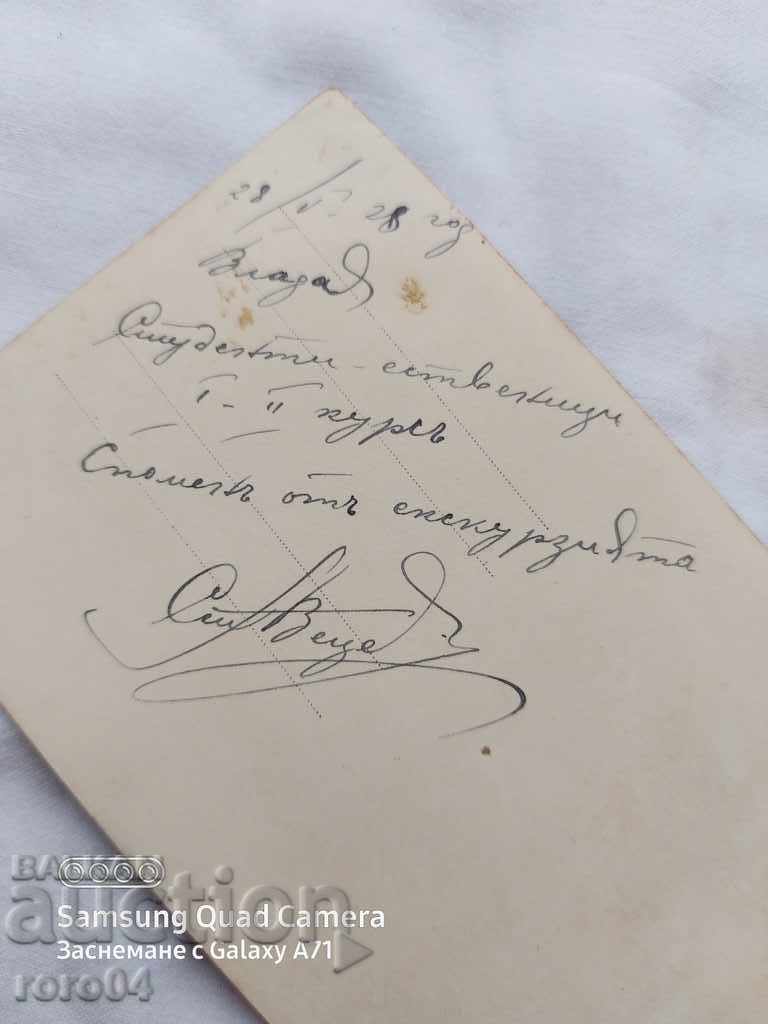 28/V. 28 год.
Владая
Студенти - естественици
I - II курсъ
Споменъ отъ екскурзията
Ст.
БАЛКАН
auction
Samsung Quad Camera
Заснемане с Galaxy A71
roro04